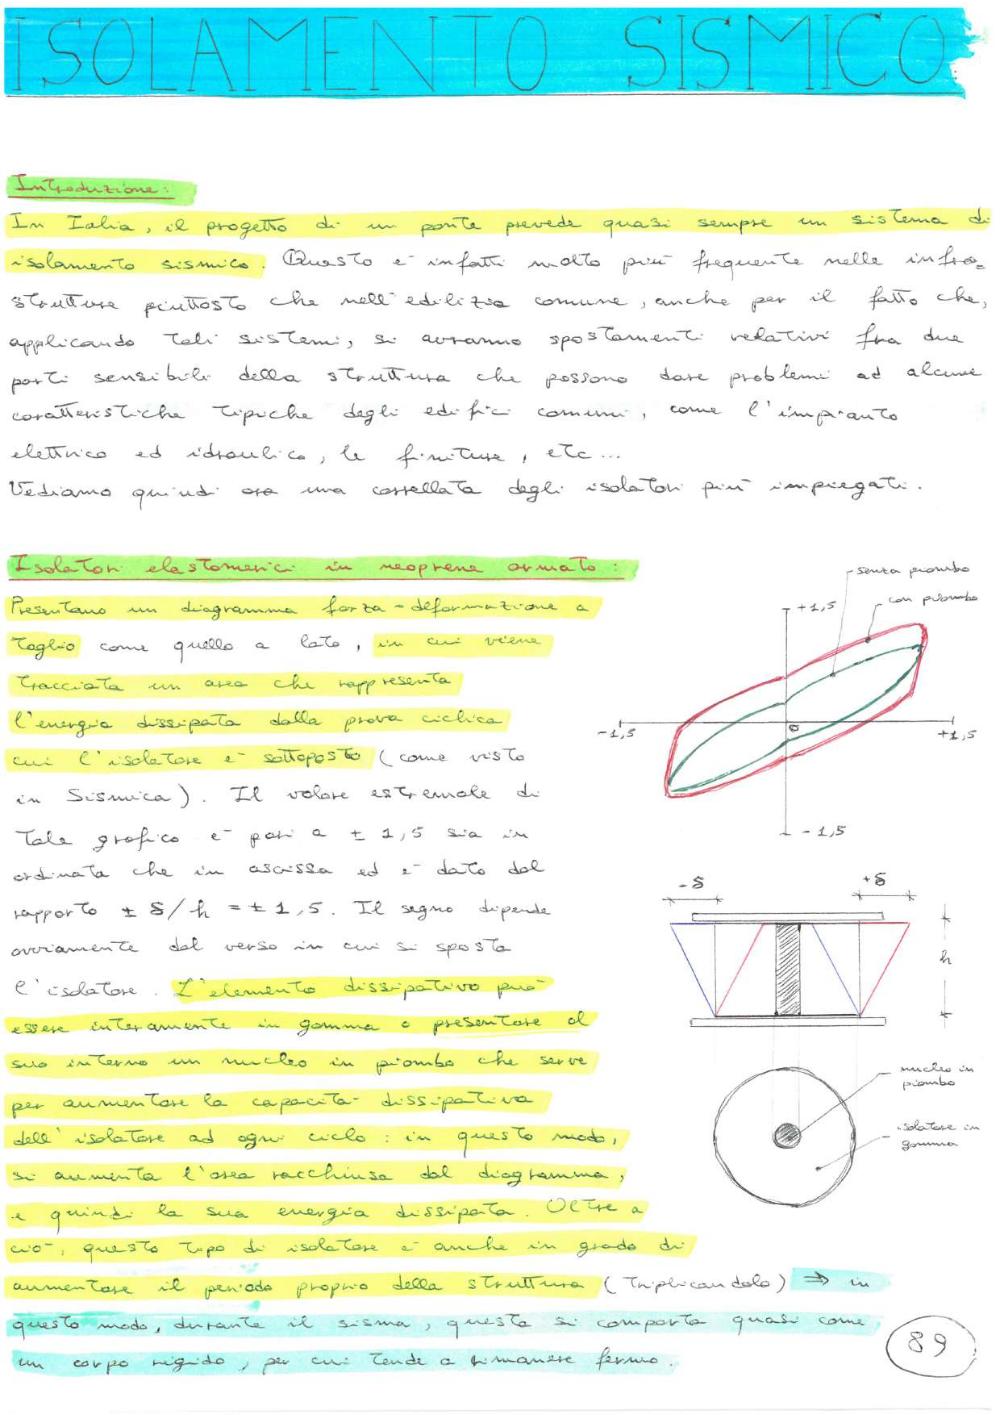 ISOLAMENTO SISMICO
Introduzione:
In Italia, il progetto di un ponte prevede quasi sempre un sistema di
isolamento sismico. Questo è infatti molto più frequente nelle infra-
strutture piuttosto che nell'edilizia comune, anche per il fatto che,
applicando tali sistemi, si avranno spostamenti relativi fra due
parti sensibili della struttura che possono dare problemi ad alcune
caratteristiche tipiche degli edifici comuni, come l'impianto
elettrico ed idraulico, le finiture, etc...
Vediamo quindi ora una carrellata degli isolatori più impiegati.
Isolatori elastomerici in neoprene armato:
Presentano un diagramma forza-deformazione a
taglio come quello a lato, in cui viene
tracciata un area che rappresenta
l'energia dissipata dalla prova ciclica
cui l'isolatore è sottoposto (come visto
in Sismica). Il valore estremale di
tale grafico è pari a ± 1,5 sia in
ordinata che in ascissa ed è dato dal
rapporto ± δ/h = ± 1,5. Il segno dipende
ovviamente dal verso in cui si sposta
l'isolatore. L'elemento dissipativo può
essere interamente in gomma o presentare al
suo interno un nucleo in piombo che serve
per aumentare la capacità dissipativa
dell'isolatore ad ogni ciclo: in questo modo,
si aumenta l'area racchiusa dal diagramma,
e quindi la sua energia dissipata. Oltre a
ciò, questo tipo di isolatore è anche in grado di
aumentare il periodo proprio della struttura (triplicandolo) ⇒ in
questo modo, durante il sisma, questa si comporta quasi come
un corpo rigido, per cui tende a rimanere fermo.
senza piombo
con piombo
+1,5
-1,5
0
+1,5
-1,5
-δ
+δ
h
nucleo in
piombo
isolatore in
gomma
89